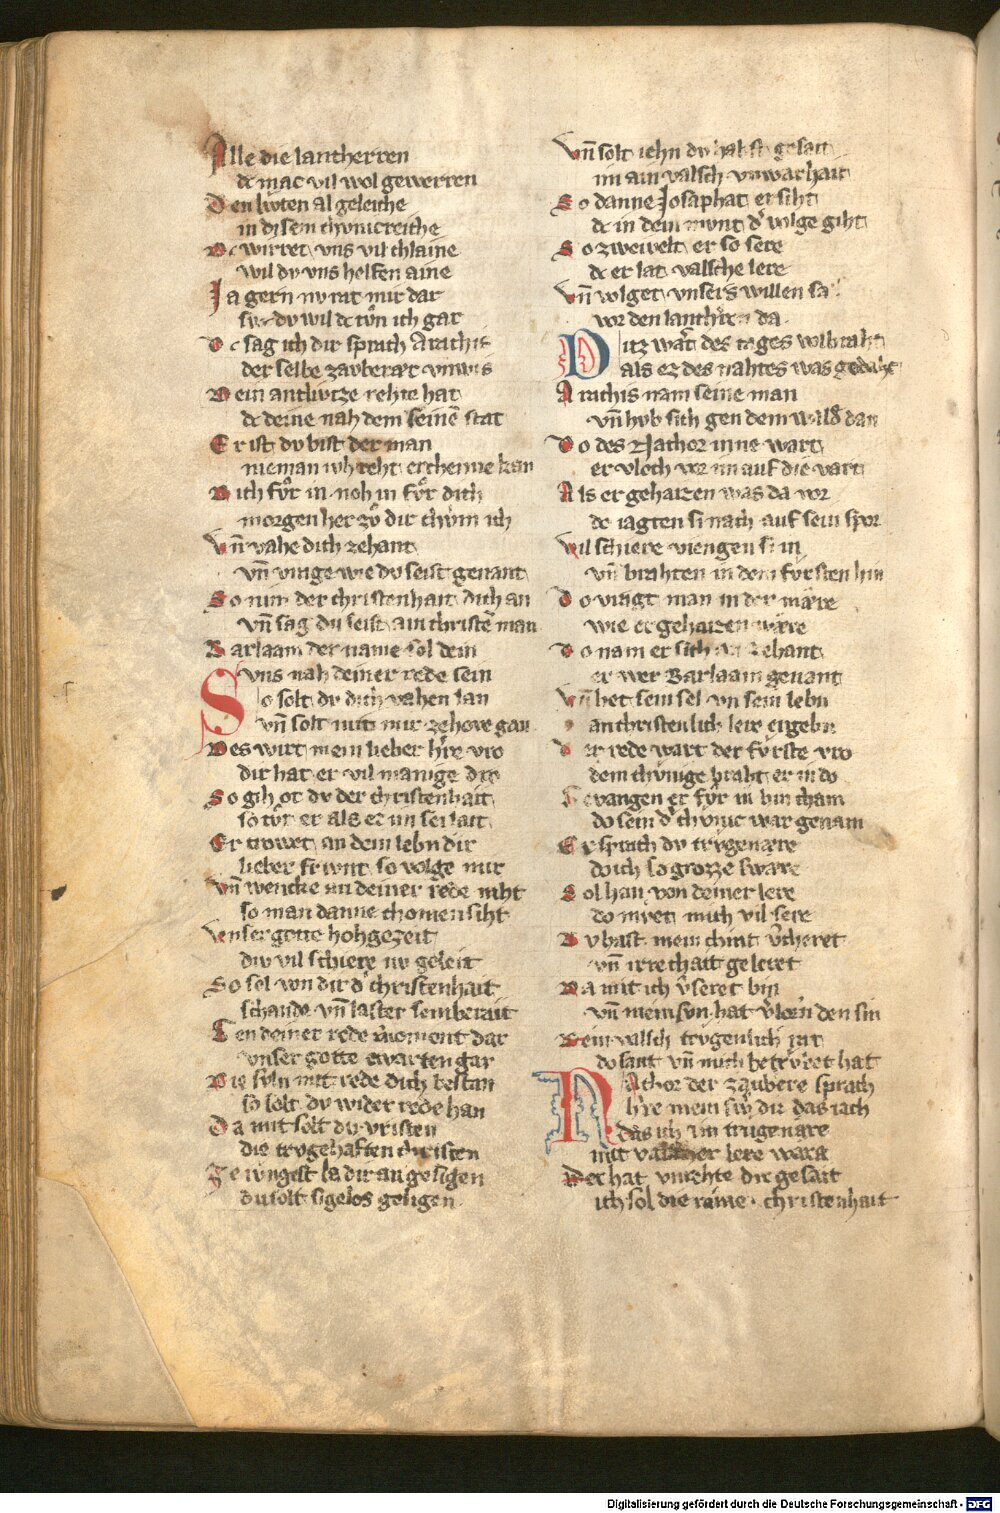 Alle die lantherren
dc mac vil wol gewerren
Den lvͦten al geleiche
in disem chvnicreiche
Dc wirret vns vil chlaine
wil dv vns helfen aine
Ja gern nv rat mir dar
swc dv wil dc tvͦn ich gar
Dc sag ich dir sprach Arachis
der selbe zavberær vnwis
Dein antlvtze rehte hat
dc deine nah dem seinē stat
Er ist dv bist der man
nieman wh reht erchenne kan
Dich fvͦr in noh in fvͦr dich
morgen her zvͦ dir chvm ich
vn̄ vahe dich zehant
vn̄ vrage wie dv seist genant
So nim der christenhait dich an
vn̄ sag du seist ain christē man
Barlaam der name sol dein
Svns nah deiner rede sein
So solt dv dich vahen lan
vn̄ solt mit mir ze hove gan
Des wirt mein lieber h're vro
dir hat er vil manige dro
So gih ot dv der christenhait
so tvͦt er als ez im sei lait
Er trowet an dem lebn dir
lieber frivnt so volge mir
vn̄ wencke an deiner rede niht
so man danne chomen siht
vnser gotte hohgezeit
div vil schiere nv geleit
So sol von dir d' christenhait
schande vn̄ laster sein berait
Gen deiner rede choment dar
vnser gotte ewarten gar
Die svln mit rede dich bestan
so solt dv wider rede han
Da mit solt dv vristen
die trvgehaften christen
Ze ivngist la dir an gesigen
du solt sigelos geligen
vn̄ solt iehn dv habst gesait
im ain valsch vnwarhait
So danne Josaphat er siht
dc in dein mvnt d' volge giht
So zweivelt er so sere
dc er lat valsche lere
vn̄ volget vnsers willen sa
vor den lanth'ren da
Ditz wart des tages volbraht
als ez des nahtes was gedaht
Arachis nam seine man
vn̄ hvb sich gen dem wald dan
Do des Nathor inne wart
er vloch vor im auf die vart
Als er gehaizen was da vor
do iagten si nach auf sein spor
vil schiere viengen si in
vn̄ brahten in dem fvrsten hin
Do vragt man in der mære
wie er gehaizen wære
Do nam er sich an zehant
er wer Barlaam genant
vn̄ het sein sel vn sein lebn
an christenlich lere ergebn
Der rede wart der fvrste vro
dem chvnige braht er in do
Gevangen er fvͦr in hin cham
do sein d' chvnic war genam
Er sprach dv trvgenære
do ich so grozze swære
Sol han von deiner lere
do mvet mich vil sere
Dv hast mein chint v'cheret
vn̄ irrechait geleret
Da mit ich v'seret bin
vn̄ mein svn hat v'lorn den sin
Dein valsch trvgenlich rat
do sant vn̄ mich betrvbet hat
Nathor der zaubere sprach
h're mein swͦ dir das iach
das ich ain trugenære
mit valscher lere wære
Der hat vnrehte dir gesait
ich sol die raine christenhait
Digitalisierung gefördert durch die Deutsche Forschungsgemeinschaft - DFG